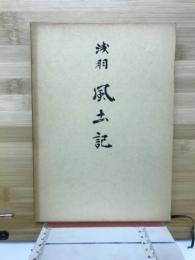 浅羽
風土記